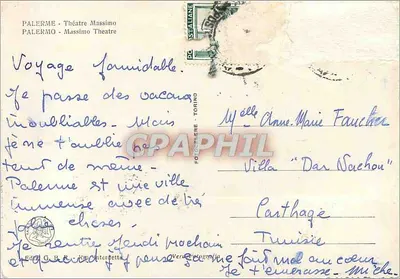 PALERME - Théâtre Massimo
PALERMO - Massimo Theatre
Voyage formidable.
Je passe des vacances
inoubliables. Mais
je ne t'oublie pas
tout de même.
Palerme est une ville
immense avec de très
jolies choses.
Je rentre Jeudi prochain
et
pense
ça me fait mal au coeur
Je t'embrasse.
POSTE ITALIANE
TORINO
Melle Anne-Marie Faucher
Villa "Dar Nachou"
Carthage
Tunisie
CARTAPHIL